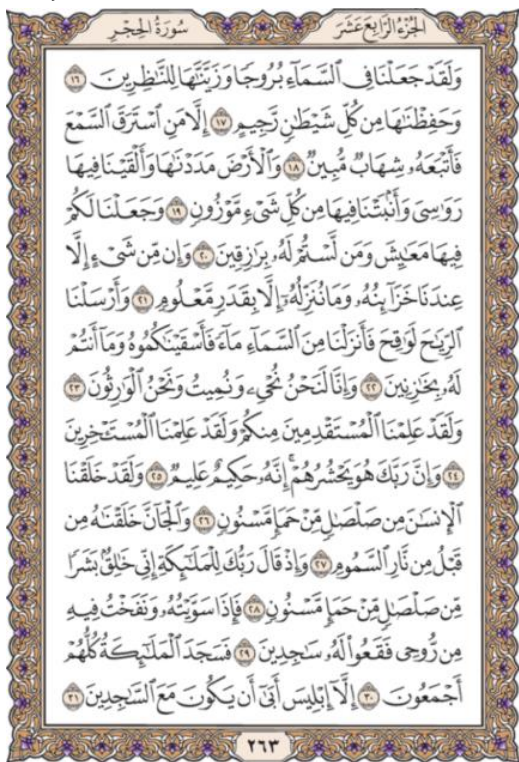 الجزء الرابع عشر
سورة الحجر
وَلَقَدْ جَعَلْنَا فِي السَّمَاءِ بُرُوجًا وَزَيَّنَّاهَا لِلنَّاظِرِينَ ١٦
وَحَفِظْنَٰهَا مِن كُلِّ شَيْطَٰنٍ رَّجِيمٍ ١٧ إِلَّا مَنِ ٱسْتَرَقَ ٱلسَّمْعَ
فَأَتْبَعَهُۥ شِهَابٌ مُّبِينٌ ١٨ وَٱلْأَرْضَ مَدَدْنَٰهَا وَأَلْقَيْنَا فِيهَا
رَوَٰسِىَ وَأَنۢبَتْنَا فِيهَا مِن كُلِّ شَىْءٍ مَّوْزُونٍ ١٩ وَجَعَلْنَا لَكُمْ
فِيهَا مَعَٰيِشَ وَمَن لَّسْتُمْ لَهُۥ بِرَٰزِقِينَ ٢٠ وَإِن مِّن شَىْءٍ إِلَّا
عِندَنَا خَزَآئِنُهُۥ وَمَا نُنَزِّلُهُۥٓ إِلَّا بِقَدَرٍ مَّعْلُومٍ ٢١ وَأَرْسَلْنَا
ٱلرِّيَٰحَ لَوَٰقِحَ فَأَنزَلْنَا مِنَ ٱلسَّمَآءِ مَآءً فَأَسْقَيْنَٰكُمُوهُ وَمَآ أَنتُمْ
لَهُۥ بِخَٰزِنِينَ ٢٢ وَإِنَّا لَنَحْنُ نُحْىِۦ وَنُمِيتُ وَنَحْنُ ٱلْوَٰرِثُونَ ٢٣
وَلَقَدْ عَلِمْنَا ٱلْمُسْتَقْدِمِينَ مِنكُمْ وَلَقَدْ عَلِمْنَا ٱلْمُسْتَـْٔخِرِينَ
٢٤ وَإِنَّ رَبَّكَ هُوَ يَحْشُرُهُمْ ۚ إِنَّهُۥ حَكِيمٌ عَلِيمٌ ٢٥ وَلَقَدْ خَلَقْنَا
ٱلْإِنسَٰنَ مِن صَلْصَٰلٍ مِّنْ حَمَإٍ مَّسْنُونٍ ٢٦ وَٱلْجَآنَّ خَلَقْنَٰهُ مِن
قَبْلُ مِن نَّارِ ٱلسَّمُومِ ٢٧ وَإِذْ قَالَ رَبُّكَ لِلْمَلَٰٓئِكَةِ إِنِّى خَٰلِقٌۢ بَشَرًا
مِّن صَلْصَٰلٍ مِّنْ حَمَإٍ مَّسْنُونٍ ٢٨ فَإِذَا سَوَّيْتُهُۥ وَنَفَخْتُ فِيهِ
مِن رُّوحِى فَقَعُوا۟ لَهُۥ سَٰجِدِينَ ٢٩ فَسَجَدَ ٱلْمَلَٰٓئِكَةُ كُلُّهُمْ
أَجْمَعُونَ ٣٠ إِلَّآ إِبْلِيسَ أَبَىٰٓ أَن يَكُونَ مَعَ ٱلسَّٰجِدِينَ ٣١
٢٦٣